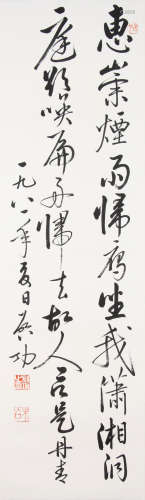 惠崇煙雨歸雁坐我瀟湘洞
庭欲喚扁舟歸去故人言是丹青
一九八一年夏日啟功